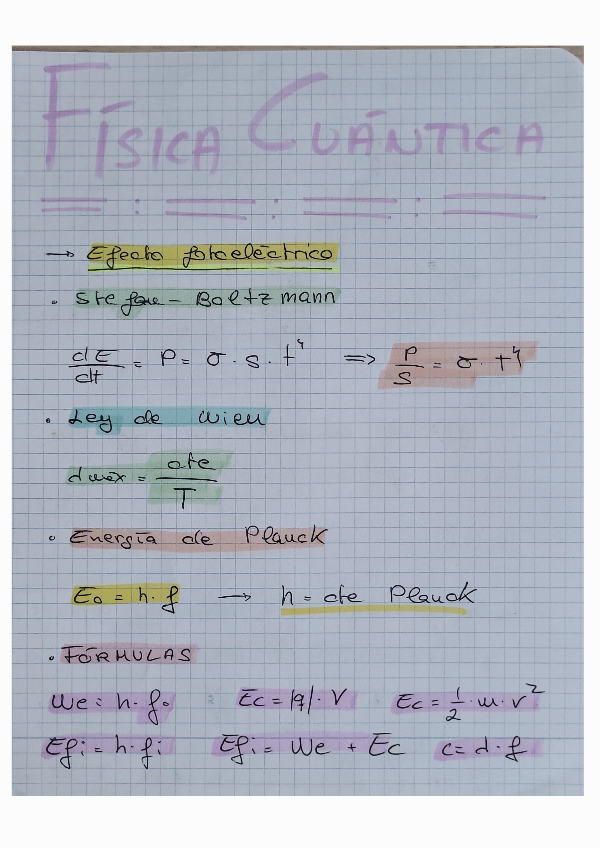 FÍSICA CUÁNTICA
→ Efecto fotoeléctrico
· Stefan - Boltzmann
dE/dt = P = σ · s · t⁴ ⇒ P/S = σ · t⁴
· Ley de Wien
d máx = cte/T
· Energía de Planck
E₀ = h · f → h = cte Planck
· FÓRMULAS
We = h · f₀ Ec = |q| · V Ec = 1/2 · m · v²
Efi = h · fi Efi = We + Ec c = d · f